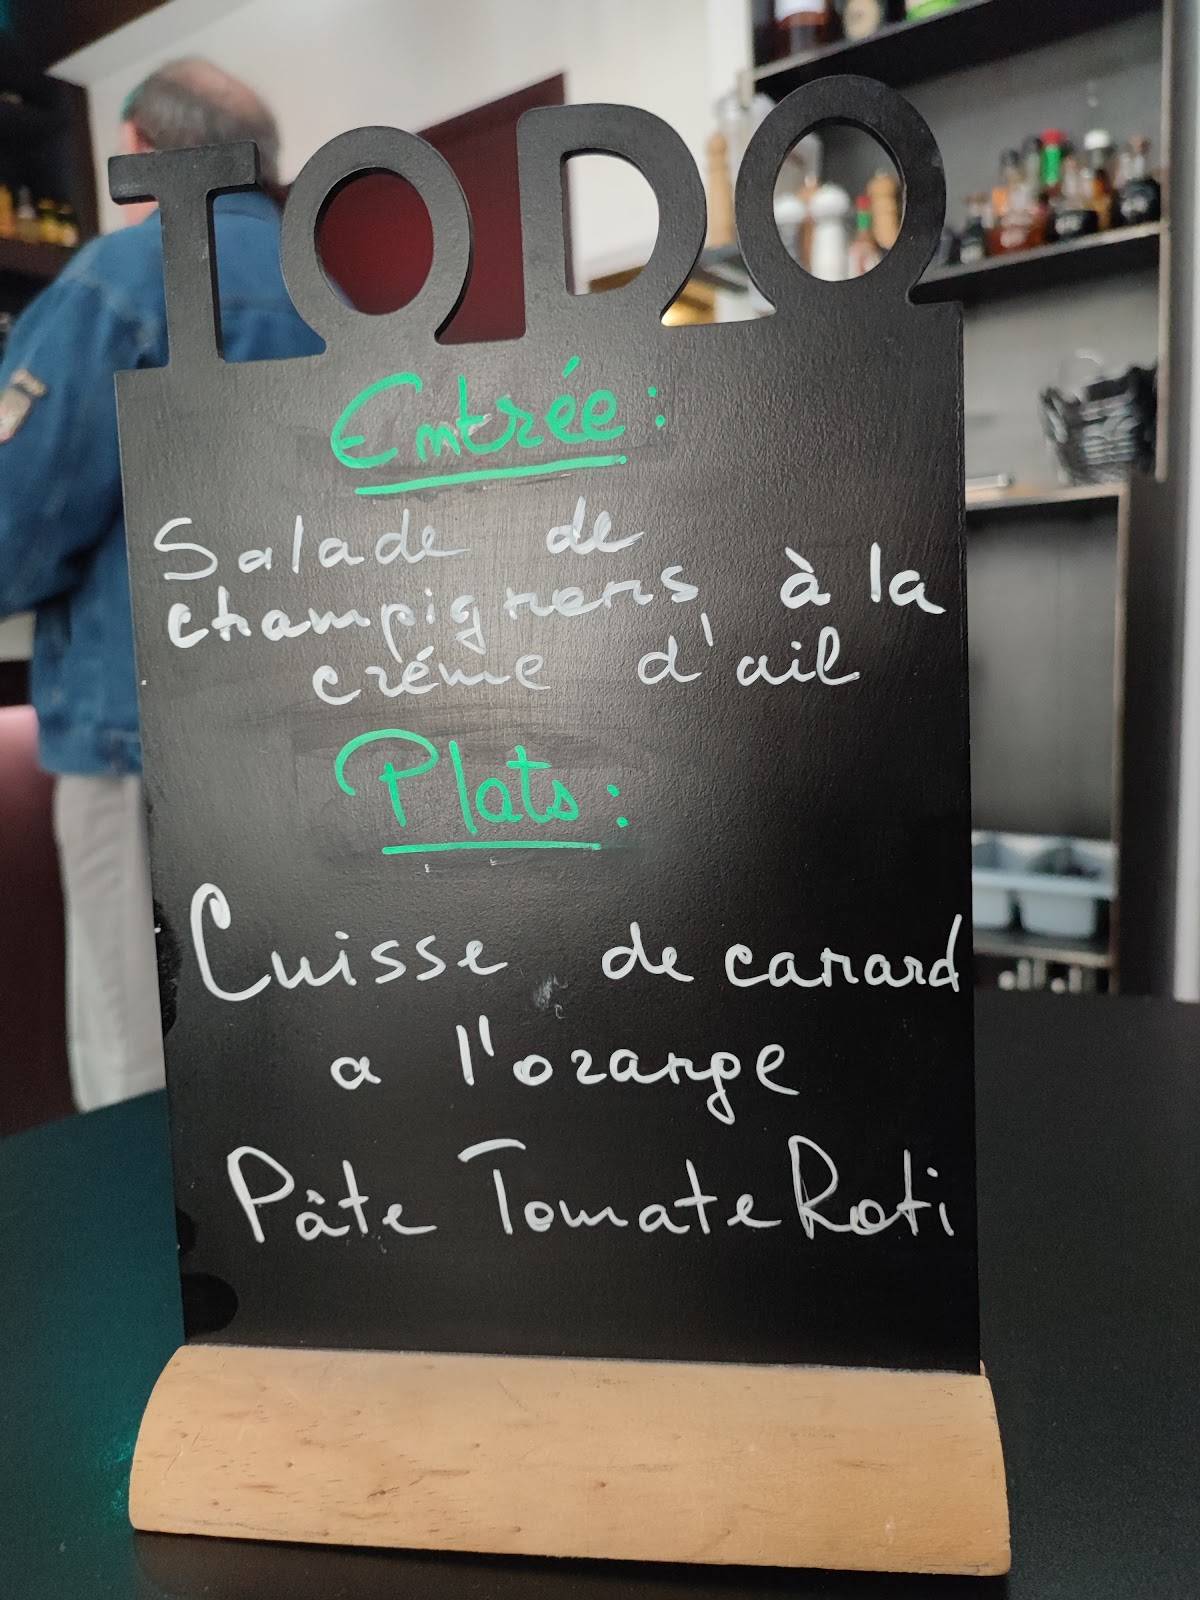 TODO
Entrée:
Salade de
champignons à la
créme d'ail
Plats:
Cuisse de canard
a l'orange
Pâte Tomate Roti